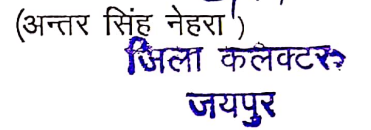 (अन्तर सिंह नेहरा)
जिला कलेक्टर
जयपुर